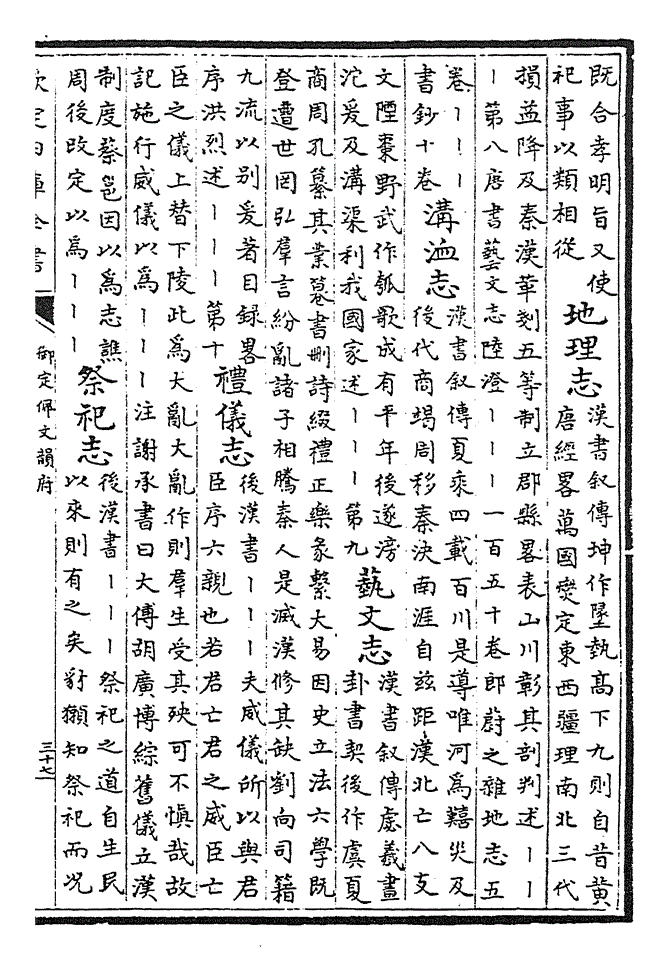 既合孝明旨又使
祀事以類相從
地理志
漢書叙傳坤作墬埶髙下九則自昔黄
唐經畧萬國燮定東西疆理南北三代
損益降及秦漢華剗五等制立郡縣畧表山川彰其剖判述丨丨
丨第八唐書藝文志陸澄丨丨丨一百五十卷郎蔚之雜地志五
卷丨丨丨
書鈔十卷
溝洫志
漢書叙傳夏乘四載百川是導唯河為囏災及
後代商竭周移秦決南涯自兹距漢北亡八支
文陻棗野武作瓠歌成有平年後遂滂
沱爰及溝渠利我國家述丨丨丨第九
藝文志
漢書叙傳虙羲畫
卦書契後作虞夏
商周孔纂其業纂書刪詩綴禮正樂彖繫大易因史立法六學既
登遭世罔弘羣言紛亂諸子相騰秦人是滅漢修其缺劉向司籍
九流以别爰著目録畧
序洪烈述丨丨丨第十
禮儀志
後漢書丨丨丨夫威儀所以與君
臣序六親也若君亡君之威臣亡
臣之儀上替下陵此為大亂大亂作則羣生受其殃可不慎哉故
記施行威儀以為丨丨丨注謝承書曰大傅胡廣博綜舊儀立漢
制度蔡邕因以為志譙
周後改定以為丨丨丨
祭祀志
後漢書丨丨丨祭祀之道自生民
以來則有之矣豺獺知祭祀而况
欽定四庫全書
御定佩文韻府
三十七